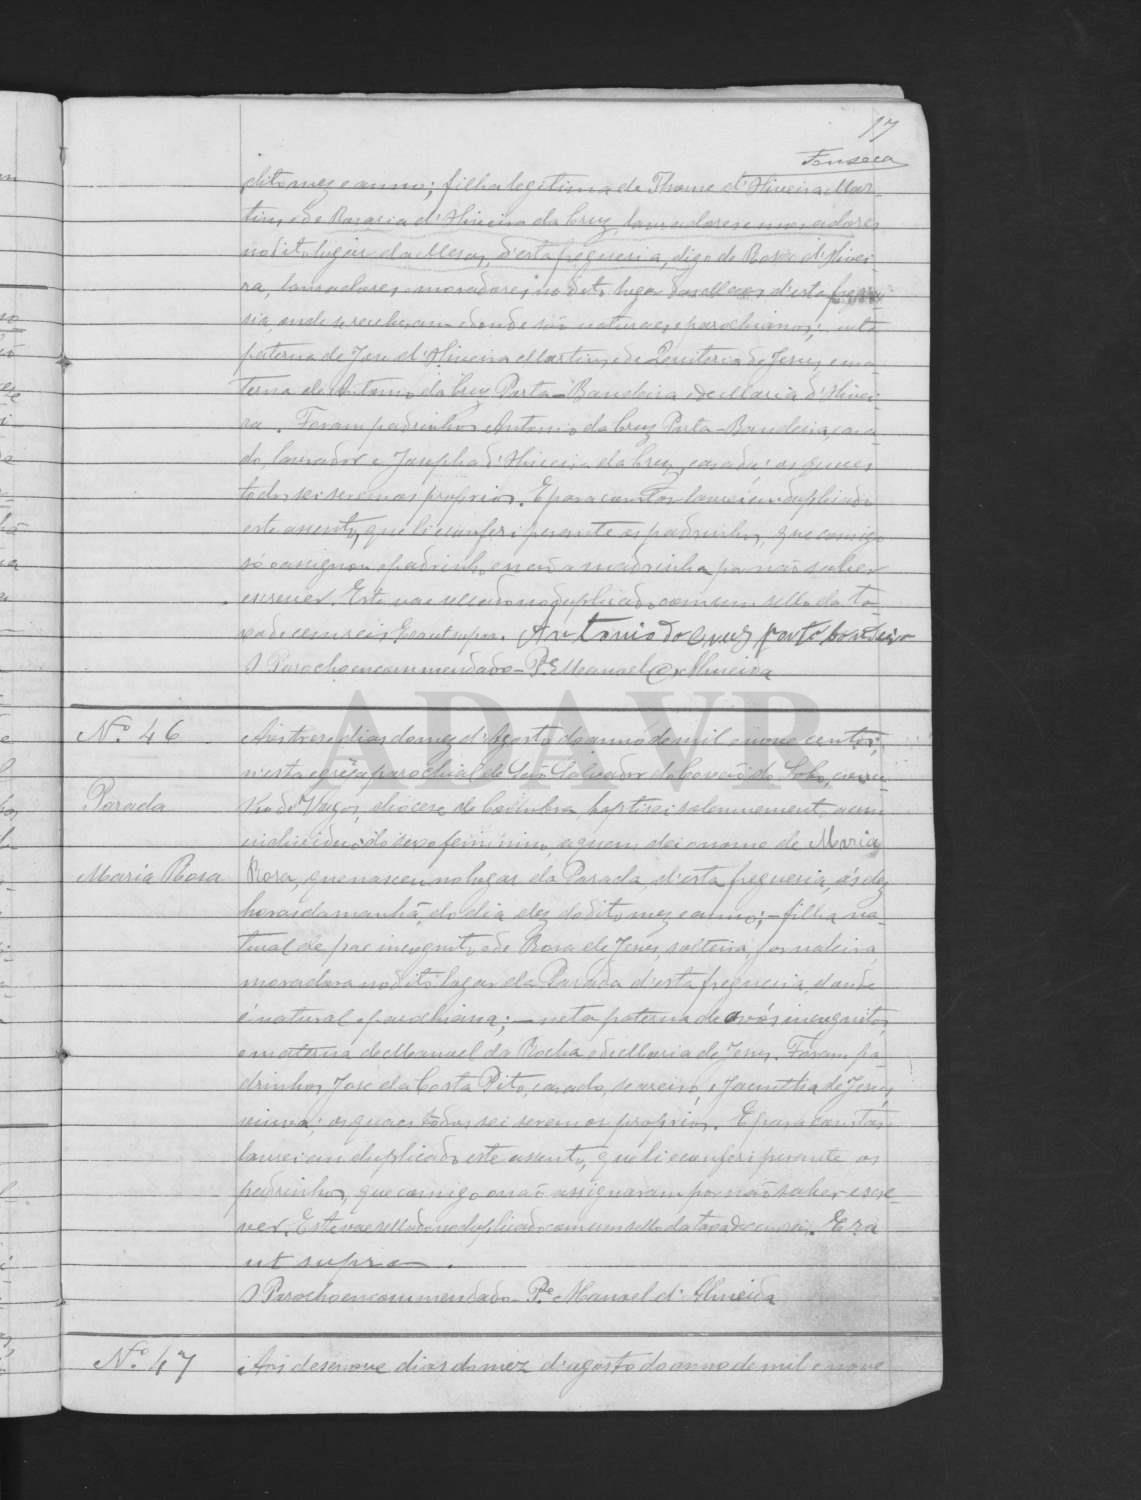 17
Fonseca
dito mez e anno; filha legitima de Thome d'Oliveira Mar-
tins e de Rosaria d'Oliveira da Cruz, lavradores e moradores
no dito lugar da Mesas, d'esta freguesia, digo de Rosa d'Olivei-
ra, lavradores, moradores no dito lugar das Mesas d'esta fregue-
sia, onde se receberam e donde são naturaes e parochianos; neta
paterna de Jose d'Oliveira Martins e de Quiteria de Jesus, e ma-
terna de Antonio da Cruz Porta-Bandeira e de Maria d'Olivei-
ra. Foram padrinhos Antonio da Cruz Porta-Bandeira, casa-
do, lavrador e Josepha d'Oliveira da Cruz, casada; os quaes
todos sei serem os proprios. E para constar lavrei em duplicado
este assento, que li e conferi perante os padrinhos, que comigo
só o assignou o padrinho e não a madrinha por não saber
escrever. Este vae sellado no duplicado com um sello da ta-
xa de cem reis. Era ut supra. Antonio do Cruz porto bandeiro
O Parocho encommendado - P.e Manoel d'Almeida
ADAVR
N.o 46
Parada
Maria Rosa
Aos treze dias do mez d'Agosto do anno de mil e nove centos,
n'esta egreja parochial de São Salvador do Covão do Lobo, conce-
lho de Vagos, diocese de Coimbra, baptisei solemnemente a um
individuo do sexo feminino, a quem dei o nome de Maria
Rosa, que nasceu no lugar da Parada, d'esta freguesia, ás dez
horas da manhã do dia dez do dito mez e anno; - filha na-
tural de pae incognito e de Rosa de Jesus, solteira, jornaleira,
moradora no dito lugar da Parada d'esta freguesia, d'onde
é natural e parochiana; - neta paterna de avós incognitos,
e materna de Manoel da Rocha e de Maria de Jesus. Foram pa-
drinhos Jose da Costa Pito, casado, seareiro, e Jacintha de Jesus,
viuva; os quaes todos sei serem os proprios. E para constar
lavrei em duplicado este assento, que li e conferi perante os
padrinhos, que comigo o não assignaram por não saber escre-
ver. Este vae sellado no duplicado com um sello da taxa de cem reis. Era
ut supra.
O Parocho encommendado - P.e Manoel d'Almeida
N.o 47
Aos desenove dias do mez d'agosto do anno de mil e nove